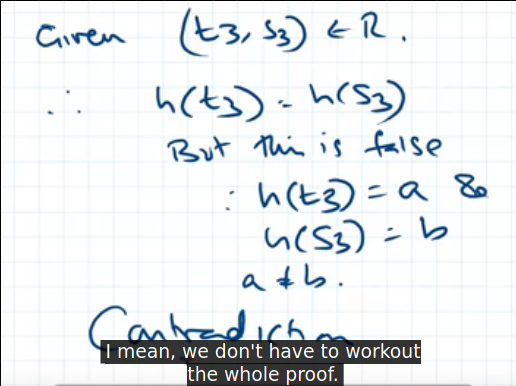 Given (t3, s3) ∈ R.
∴ h(t3) = h(s3)
But this is false
∵ h(t3) = a &
h(s3) = b
a ≠ b.
Contradiction
I mean, we don't have to workout
the whole proof.